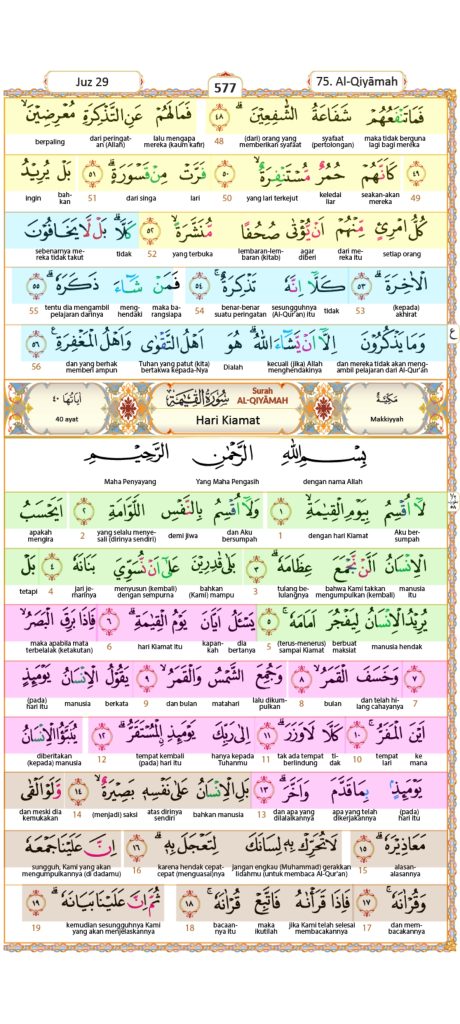 Juz 29
577
75. Al-Qiyāmah
فَمَا تَنْفَعُهُمْ شَفَاعَةُ الشّٰفِعِيْنَۗ ٤٨ فَمَا لَهُمْ عَنِ التَّذْكِرَةِ مُعْرِضِيْنَۙ
maka tidak berguna lagi bagi mereka syafaat (pertolongan) (dari) orang yang memberikan syafaat 48 lalu mengapa mereka (kaum kafir) dari peringat-an (Allah) berpaling
٤٩ كَاَنَّهُمْ حُمُرٌ مُّسْتَنْفِرَةٌۙ ٥٠ فَرَّتْ مِنْ قَسْوَرَةٍۗ ٥١ بَلْ يُرِيْدُ
49 seakan-akan mereka keledai liar yang lari terkejut 50 lari dari singa 51 bah-kan ingin
كُلُّ امْرِئٍ مِّنْهُمْ اَنْ يُّؤْتٰى صُحُفًا مُّنَشَّرَةًۙ ٥٢ كَلَّاۗ بَلْ لَّا يَخَافُوْنَ
setiap orang dari me-reka itu agar diberi lembaran-lembaran (kitab) yang terbuka 52 tidak sebenarnya me-reka tidak takut
الْاٰخِرَةَۗ ٥٣ كَلَّآ اِنَّهٗ تَذْكِرَةٌۚ ٥٤ فَمَنْ شَاۤءَ ذَكَرَهٗۗ ٥٥
(kepada) akhirat 53 tidak sesungguhnya (Al-Qur'an) itu benar-benar suatu peringatan 54 maka ba-rangsiapa meng-hendaki tentu dia mengambil pelajaran darinya 55
وَمَا يَذْكُرُوْنَ اِلَّآ اَنْ يَّشَاۤءَ اللّٰهُۗ هُوَ اَهْلُ التَّقْوٰى وَاَهْلُ الْمَغْفِرَةِ ٥٦
dan mereka tidak akan meng-ambil pelajaran dari Al-Qur'an kecuali (jika) Allah menghendakinya Dialah Tuhan yang patut (kita) bertakwa kepada-Nya dan yang berhak memberi ampun 56
ع
مَكِّيَّةٌ
Makkiyyah
سُوْرَةُ الْقِيٰمَةِ
Surah AL-QIYĀMAH
Hari Kiamat
اٰيَاتُهَا ٤٠
40 ayat
بِسْمِ اللّٰهِ الرَّحْمٰنِ الرَّحِيْمِ
dengan nama Allah Yang Maha Pengasih Maha Penyayang
لَآ اُقْسِمُ بِيَوْمِ الْقِيٰمَةِۙ ١ وَلَآ اُقْسِمُ بِالنَّفْسِ اللَّوَّامَةِ ٢ اَيَحْسَبُ
Aku ber-sumpah dengan hari Kiamat 1 dan Aku bersumpah demi jiwa yang selalu menye-sali (dirinya sendiri) 2 apakah mengira
الْاِنْسَانُ اَلَّنْ نَّجْمَعَ عِظَامَهٗۗ ٣ بَلٰى قٰدِرِيْنَ عَلٰٓى اَنْ نُّسَوِّيَ بَنَانَهٗ ٤ بَلْ
manusia itu bahwa Kami takkan mengumpulkan (kembali) tulang be-lulangnya 3 bahkan (Kami) mampu menyusun (kembali) dengan sempurna jari je-marinya 4 tetapi
يُرِيْدُ الْاِنْسَانُ لِيَفْجُرَ اَمَامَهٗۚ ٥ يَسْـَٔلُ اَيَّانَ يَوْمُ الْقِيٰمَةِۗ ٦ فَاِذَا بَرِقَ الْبَصَرُۙ
manusia hendak berbuat maksiat (terus-menerus) sampai Kiamat 5 dia bertanya kapan-kah hari Kiamat itu 6 maka apabila mata terbelalak (ketakutan)
٧ وَخَسَفَ الْقَمَرُۙ ٨ وَجُمِعَ الشَّمْسُ وَالْقَمَرُۙ ٩ يَقُوْلُ الْاِنْسَانُ يَوْمَىِٕذٍ
7 dan telah hi-lang cahayanya bulan 8 lalu dikum-pulkan matahari dan bulan 9 berkata manusia (pada) hari itu
اَيْنَ الْمَفَرُّۚ ١٠ كَلَّا لَا وَزَرَۗ ١١ اِلٰى رَبِّكَ يَوْمَىِٕذِ ࣙالْمُسْتَقَرُّۗ ١٢ يُنَبَّؤُا الْاِنْسَانُ
ke mana tempat lari 10 ti-dak tak ada tempat berlindung 11 hanya kepada Tuhanmu tempat kembali (pada) hari itu 12 diberitakan (kepada) manusia
يَوْمَىِٕذٍۢ بِمَا قَدَّمَ وَاَخَّرَۗ ١٣ بَلِ الْاِنْسَانُ عَلٰى نَفْسِهٖ بَصِيْرَةٌۙ ١٤ وَّلَوْ اَلْقٰى
(pada) hari itu apa yang telah dikerjakannya dan apa yang dilalaikannya 13 bahkan manusia atas dirinya sendiri (menjadi) saksi 14 dan meski dia kemukakan
مَعَاذِيْرَهٗۗ ١٥ لَا تُحَرِّكْ بِهٖ لِسَانَكَ لِتَعْجَلَ بِهٖۗ ١٦ اِنَّ عَلَيْنَا جَمْعَهٗ
alasan-alasannya 15 jangan engkau (Muhammad) gerakkan lidahmu (untuk membaca Al-Qur'an) karena hendak cepat-cepat (menguasai)nya 16 sungguh, Kami yang akan mengumpulkannya (di dadamu)
وَقُرْاٰنَهٗۚ ١٧ فَاِذَا قَرَأْنٰهُ فَاتَّبِعْ قُرْاٰنَهٗۚ ١٨ ثُمَّ اِنَّ عَلَيْنَا بَيَانَهٗۗ ١٩
dan mem-bacakannya 17 jika Kami telah selesai membacakannya maka ikutilah bacaan-nya itu 18 kemudian sesungguhnya Kami yang akan menjelaskannya 19